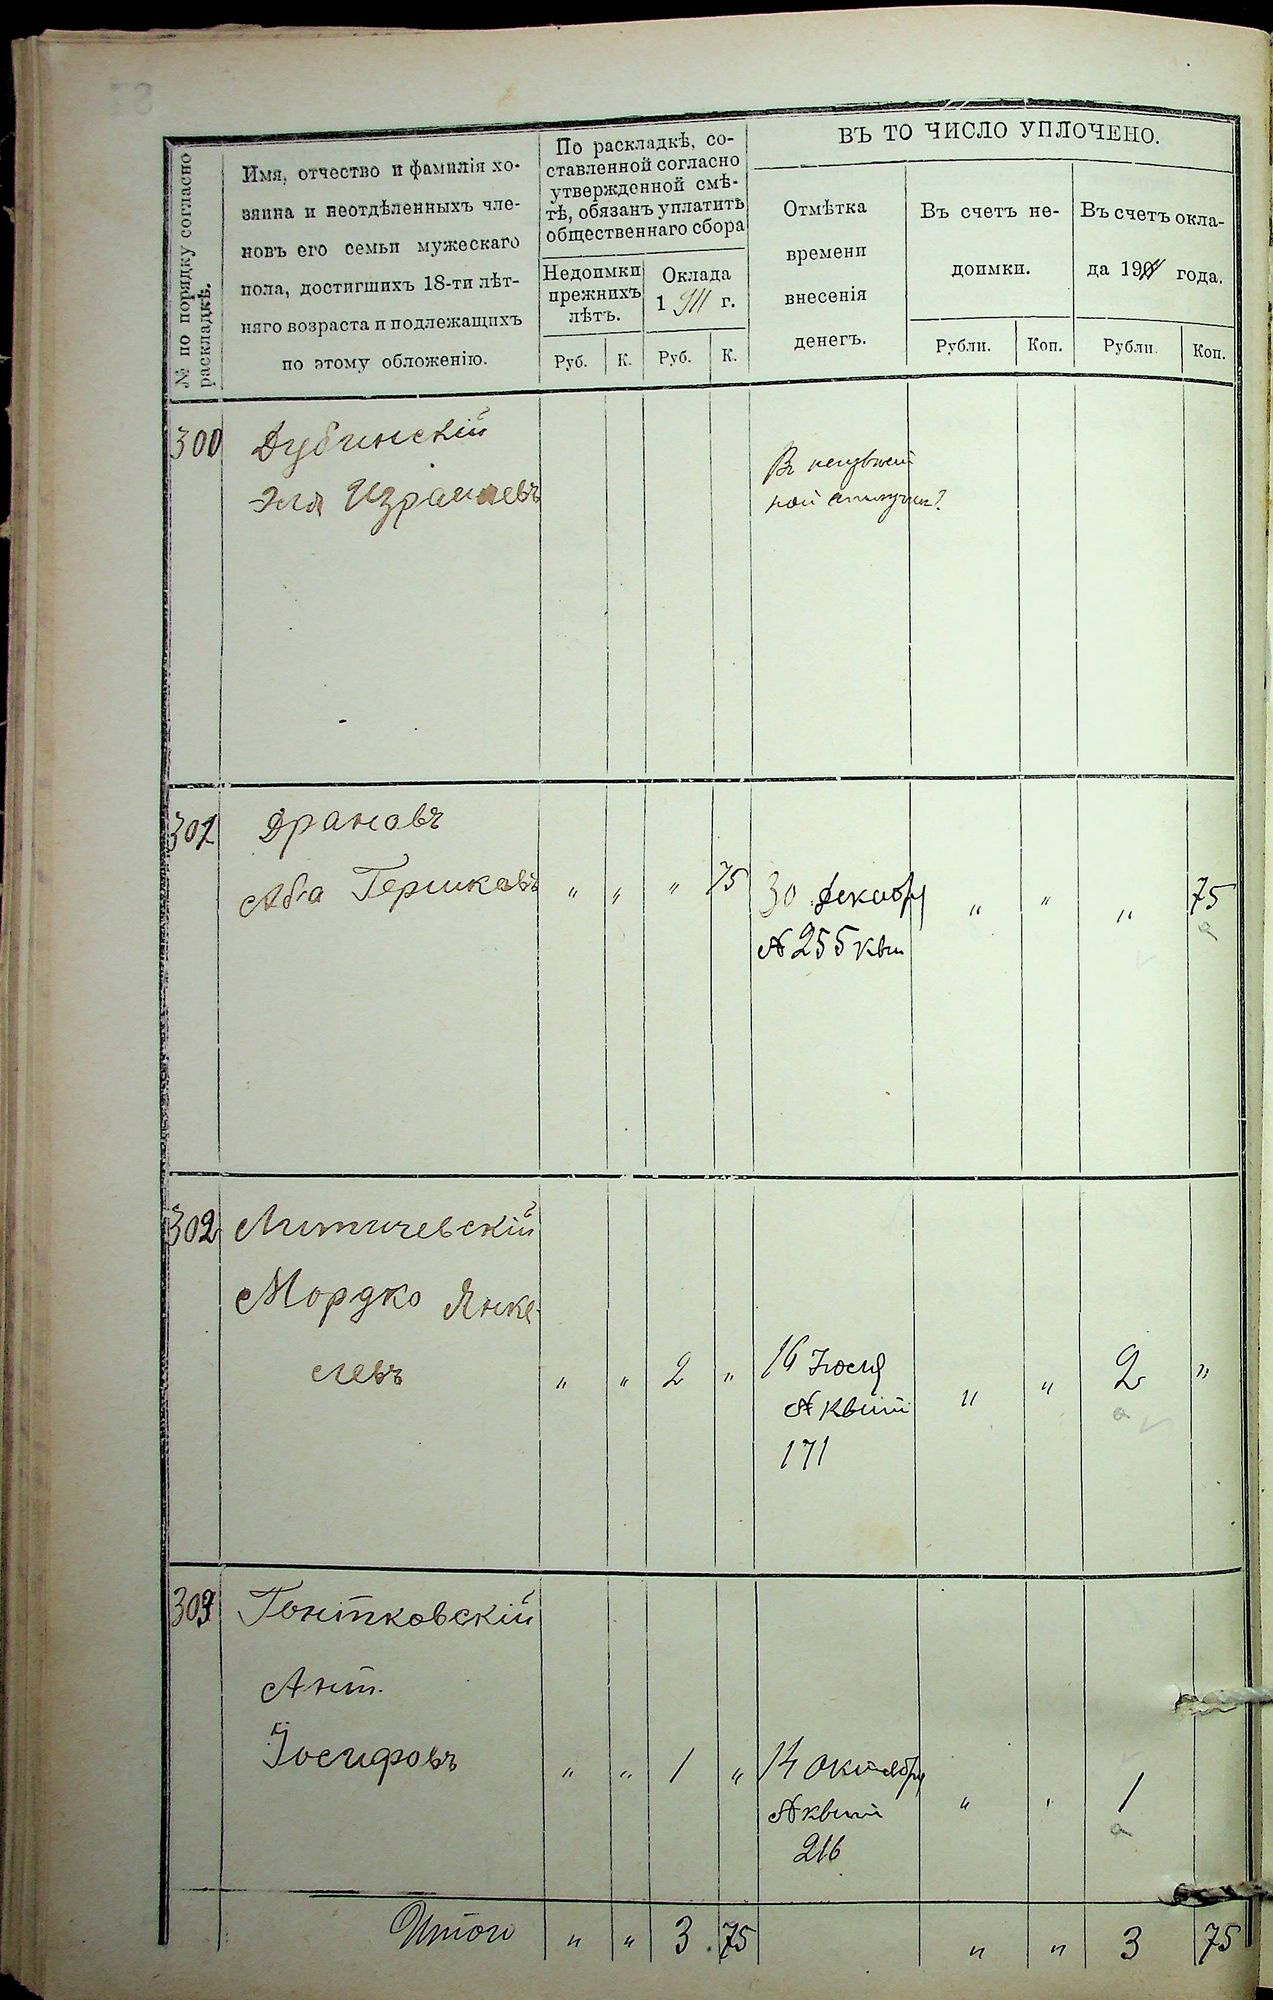 № по порядку согласно
раскладкѣ.
Имя, отчество и фамилія хо-
зяина и неотдѣленныхъ чле-
новъ его семьи мужескаго
пола, достигшихъ 18-ти лѣт-
няго возраста и подлежащихъ
по этому обложенію.
По раскладкѣ, со-
ставленной согласно
утвержденной смѣ-
тѣ, обязанъ уплатить
общественнаго сбора
Недоимки
прежнихъ
лѣтъ.
Оклада
1911 г.
Руб.
К.
Руб.
К.
ВЪ ТО ЧИСЛО УПЛОЧЕНО.
Отмѣтка
времени
внесенія
денегъ.
Въ счетъ не-
доимки.
Рубли.
Коп.
Въ счетъ окла-
да 1911 года.
Рубли.
Коп.
300
Дубинскій
Эля Израилевъ
Въ
301
Драновъ
Аба Гершковъ
" " " 75
30 декабр
№ 255 кви
" " " 75
302
Литичевскій
Мордко Янке-
левъ
" " 2 "
16 Іюля
№ квит
171
" " 2 "
303
Гонтковскій
Ант.
Іосифовъ
" " 1 "
14 октябр
№ квит
216
" " 1
Итого " " 3 75 " " 3 75